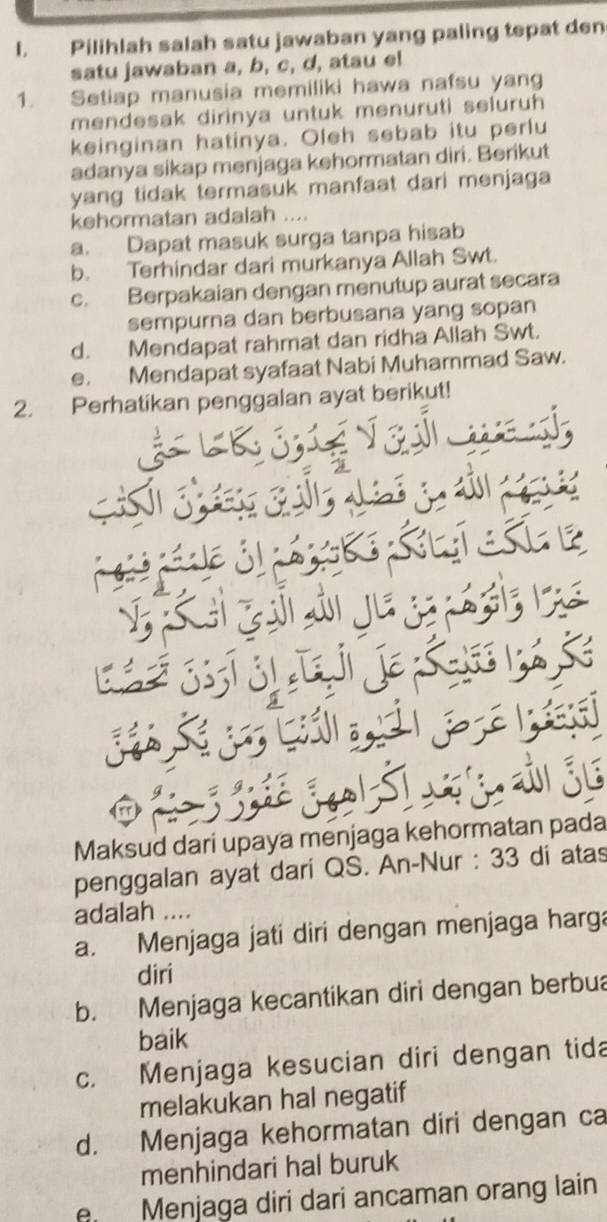 I. Pilihlah salah satu jawaban yang paling tepat den
satu jawaban a, b, c, d, atau e!
1. Setiap manusia memiliki hawa nafsu yang
mendesak dirinya untuk menuruti seluruh
keinginan hatinya. Oleh sebab itu perlu
adanya sikap menjaga kehormatan diri. Berikut
yang tidak termasuk manfaat dari menjaga
kehormatan adalah ....
a. Dapat masuk surga tanpa hisab
b. Terhindar dari murkanya Allah Swt.
c. Berpakaian dengan menutup aurat secara
sempurna dan berbusana yang sopan
d. Mendapat rahmat dan ridha Allah Swt.
e. Mendapat syafaat Nabi Muhammad Saw.
2. Perhatikan penggalan ayat berikut!
وَلْيَسْتَعْفِفِ الَّذِيْنَ لَا يَجِدُوْنَ نِكَاحًا حَتّٰى
يُغْنِيَهُمُ اللّٰهُ مِنْ فَضْلِهٖ ۗ وَالَّذِيْنَ يَبْتَغُوْنَ الْكِتٰبَ
مِمَّا مَلَكَتْ اَيْمَانُكُمْ فَكَاتِبُوْهُمْ اِنْ عَلِمْتُمْ فِيْهِمْ
خَيْرًا وَّاٰتُوْهُمْ مِّنْ مَّالِ اللّٰهِ الَّذِيْٓ اٰتٰىكُمْ ۗ وَلَا
تُكْرِهُوْا فَتَيٰتِكُمْ عَلَى الْبِغَاۤءِ اِنْ اَرَدْنَ تَحَصُّنًا
لِّتَبْتَغُوْا عَرَضَ الْحَيٰوةِ الدُّنْيَا ۗ وَمَنْ يُّكْرِهْهُّنَّ
فَاِنَّ اللّٰهَ مِنْۢ بَعْدِ اِكْرَاهِهِنَّ غَفُوْرٌ رَّحِيْمٌ ٣٣
Maksud dari upaya menjaga kehormatan pada
penggalan ayat dari QS. An-Nur : 33 di atas
adalah ....
a. Menjaga jati diri dengan menjaga harga
diri
b. Menjaga kecantikan diri dengan berbua
baik
c. Menjaga kesucian diri dengan tida
melakukan hal negatif
d. Menjaga kehormatan diri dengan ca
menhindari hal buruk
e. Menjaga diri dari ancaman orang lain